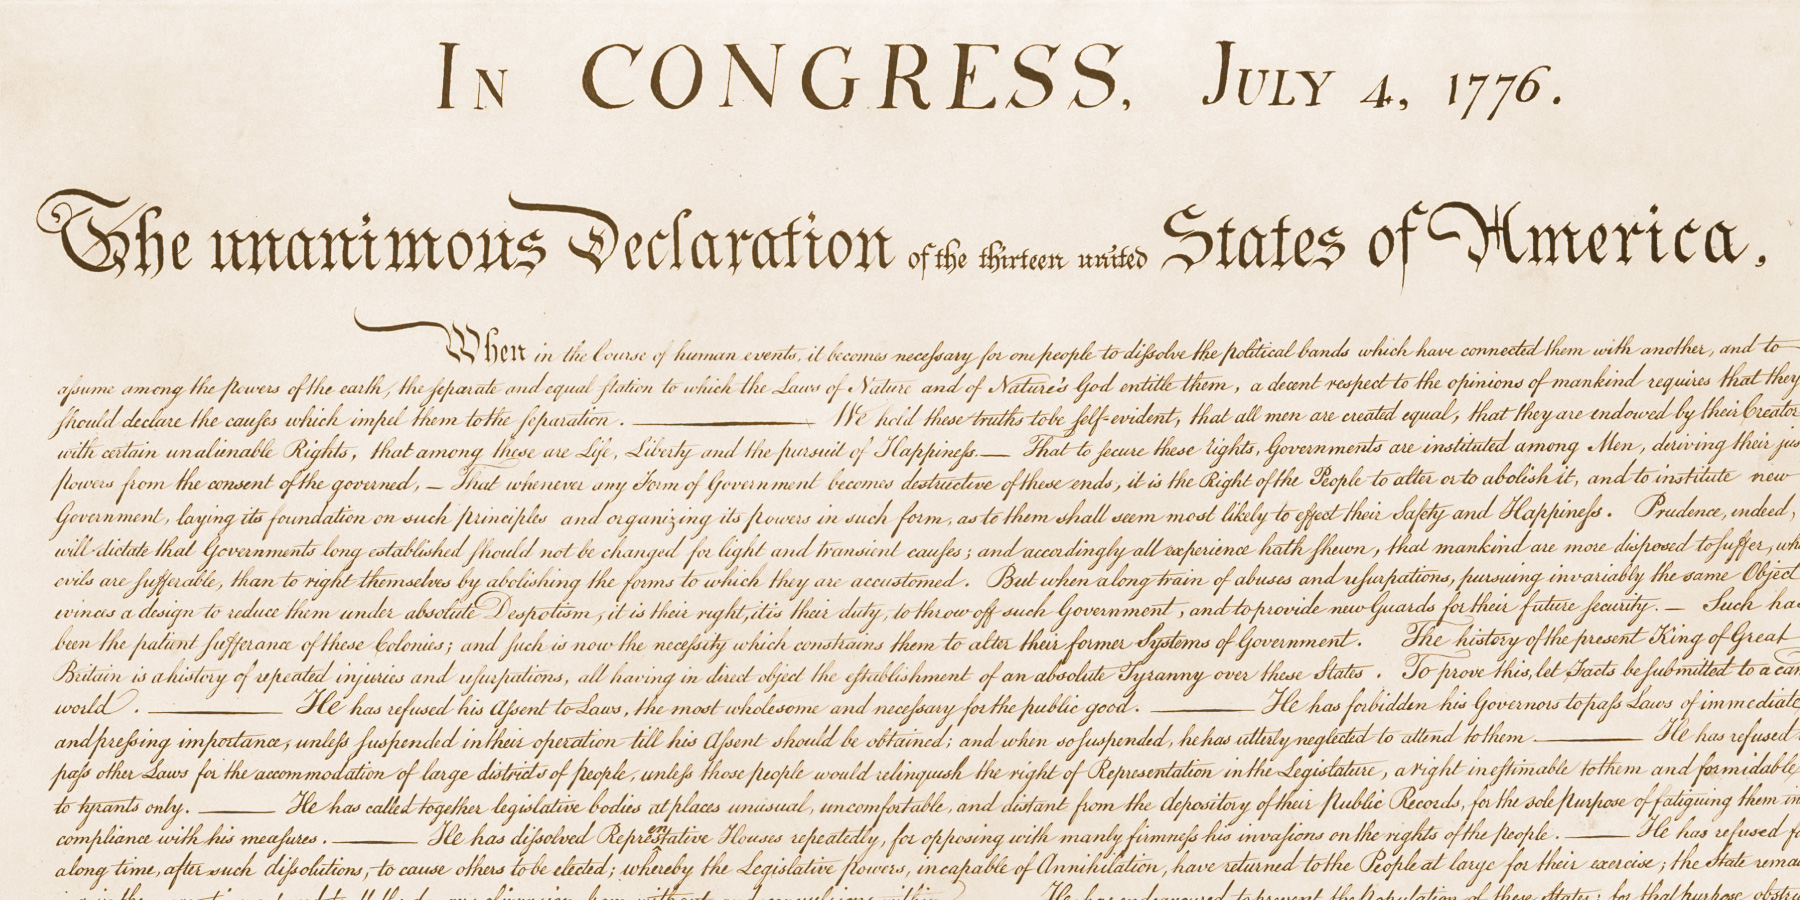 In CONGRESS, July 4, 1776.
The unanimous Declaration of the thirteen united States of America,
When in the Course of human events, it becomes necessary for one people to dissolve the political bands which have connected them with another, and to
assume among the powers of the earth, the separate and equal station to which the Laws of Nature and of Nature's God entitle them, a decent respect to the opinions of mankind requires that they
should declare the causes which impel them to the separation. — We hold these truths to be self-evident, that all men are created equal, that they are endowed by their Creator
with certain unalienable Rights, that among these are Life, Liberty and the pursuit of Happiness.— That to secure these rights, Governments are instituted among Men, deriving their jus
powers from the consent of the governed, — That whenever any Form of Government becomes destructive of these ends, it is the Right of the People to alter or to abolish it, and to institute new
Government, laying its foundation on such principles and organizing its powers in such form, as to them shall seem most likely to effect their Safety and Happiness. Prudence, indeed,
will dictate that Governments long established should not be changed for light and transient causes; and accordingly all experience hath shewn, that mankind are more disposed to suffer, whi
evils are sufferable, than to right themselves by abolishing the forms to which they are accustomed. But when a long train of abuses and usurpations, pursuing invariably the same Object
evinces a design to reduce them under absolute Despotism, it is their right, it is their duty, to throw off such Government, and to provide new Guards for their future security. — Such has
been the patient sufferance of these Colonies; and such is now the necessity which constrains them to alter their former Systems of Government. The history of the present King of Great
Britain is a history of repeated injuries and usurpations, all having in direct object the establishment of an absolute Tyranny over these States. To prove this, let Facts be submitted to a can
world. — He has refused his Assent to Laws, the most wholesome and necessary for the public good. — He has forbidden his Governors to pass Laws of immediate
and pressing importance, unless suspended in their operation till his Assent should be obtained; and when so suspended, he has utterly neglected to attend to them — He has refused
pass other Laws for the accommodation of large districts of people, unless those people would relinquish the right of Representation in the Legislature, a right inestimable to them and formidable
to tyrants only. — He has called together legislative bodies at places unusual, uncomfortable, and distant from the depository of their Public Records, for the sole purpose of fatiguing them in
compliance with his measures. — He has dissolved Representative Houses repeatedly, for opposing with manly firmness his invasions on the rights of the people. — He has refused fo
along time, after such dissolutions, to cause others to be elected; whereby the Legislative powers, incapable of Annihilation, have returned to the People at large for their exercise; the State rema
He has endeavoured to prevent the Population of these States; for that purpose obstru